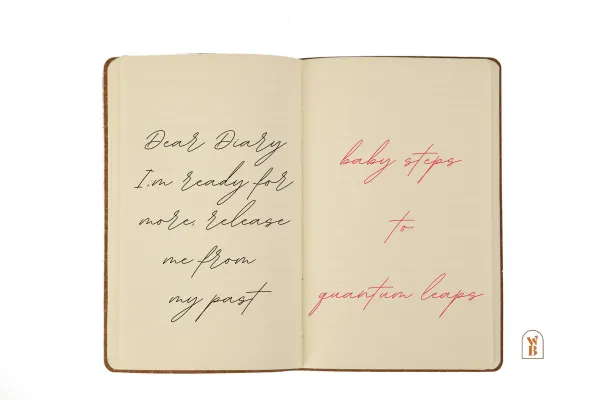 Dear Diary
I'm ready for
more, release
me from
my past
baby steps
to
quantum leaps
W
B